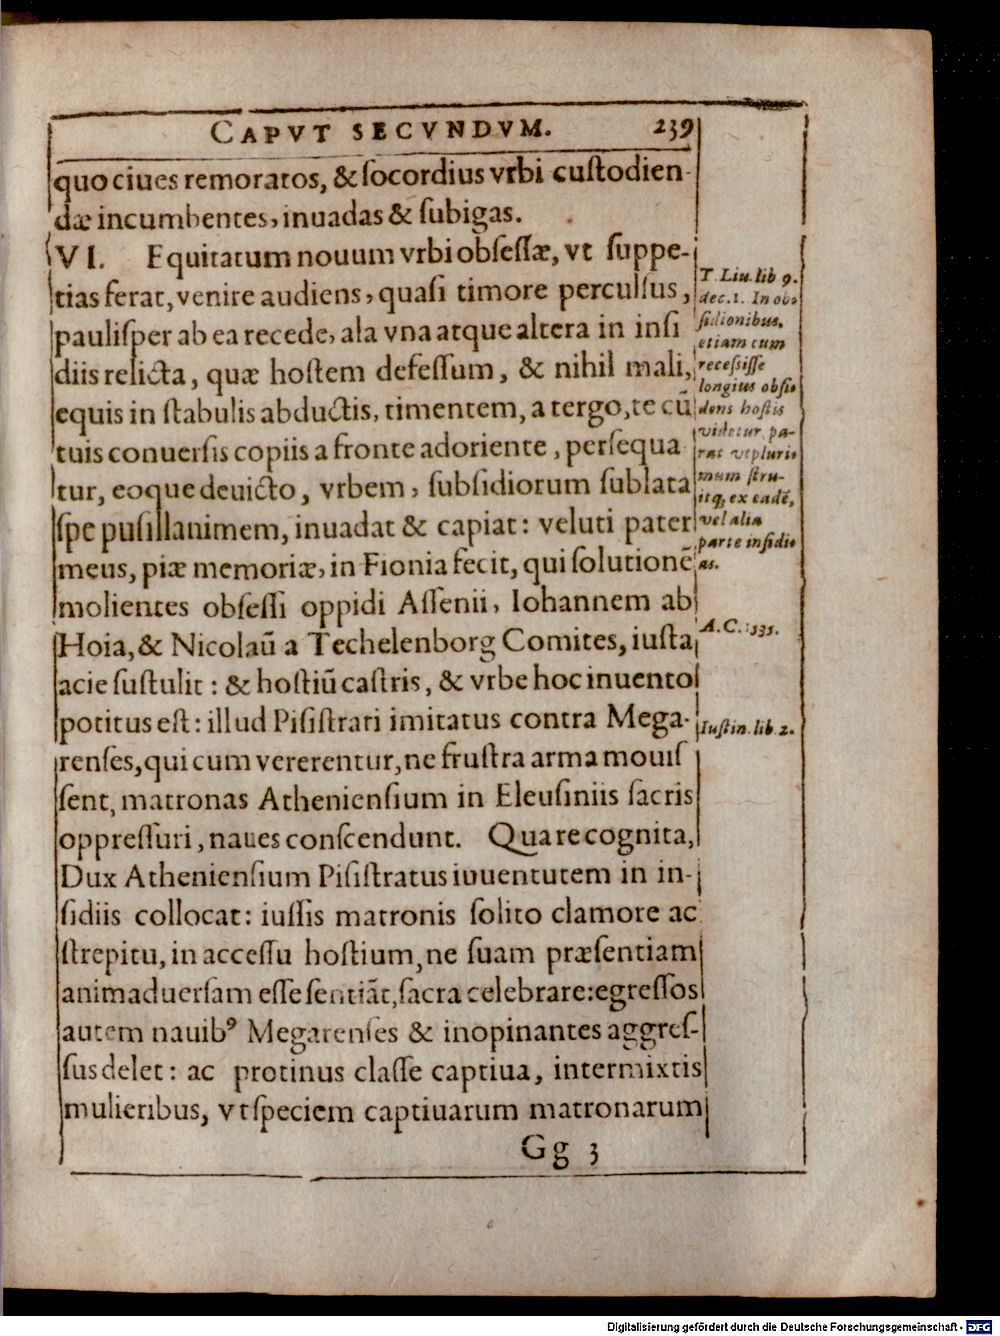 CAPVT SECVNDVM. 239
quo ciues remoratos, & ſocordius vrbi cuſtodien-
dæ incumbentes, inuadas & ſubigas.
VI. Equitatum nouum vrbi obſeſſæ, vt ſuppe-
tias ferat, venire audiens, quaſi timore perculſus,
pauliſper ab ea recede, ala vna atque altera in inſi
diis relicta, quæ hoſtem defeſſum, & nihil mali,
equis in ſtabulis abductis, timentem, a tergo, te cū
tuis conuerſis copiis a fronte adoriente, perſequa
tur, eoque deuicto, vrbem, ſubſidiorum ſublata
ſpe puſillanimem, inuadat & capiat: veluti pater
meus, piæ memoriæ, in Fionia fecit, qui ſolutionē
molientes obſeſſi oppidi Aſſenii, Iohannem ab
Hoia, & Nicolaū a Techelenborg Comites, iuſta
acie ſuſtulit: & hoſtiū caſtris, & vrbe hoc inuento
potitus eſt: illud Piſiſtrati imitatus contra Mega-
renſes, qui cum vererentur, ne fruſtra arma mouiſ
ſent, matronas Athenienſium in Eleuſiniis ſacris
oppreſſuri, naues conſcendunt. Qua re cognita,
Dux Athenienſium Piſiſtratus iuuentutem in in-
ſidiis collocat: iuſſis matronis ſolito clamore ac
ſtrepitu, in acceſſu hoſtium, ne ſuam præſentiam
animaduerſam eſſe ſentiāt, ſacra celebrare: egreſſos
autem nauibꝰ Megarenſes & inopinantes aggreſ-
ſus delet: ac protinus claſſe captiua, intermixtis
mulieribus, vt ſpeciem captiuarum matronarum
Gg 3
T. Liu. lib 9.
dec. 1. In ob-
ſidionibus,
etiam cum
receſsiſſe
longius obſi-
dens hoſtis
videtur, pa-
rat vt pluri-
mum ſtru-
itq, ex eadē,
vel alia
parte inſidi-
as.
A. C. 1535.
Iuſtin. lib 2.
Digitalisierung gefördert durch die Deutsche Forschungsgemeinschaft - DFG